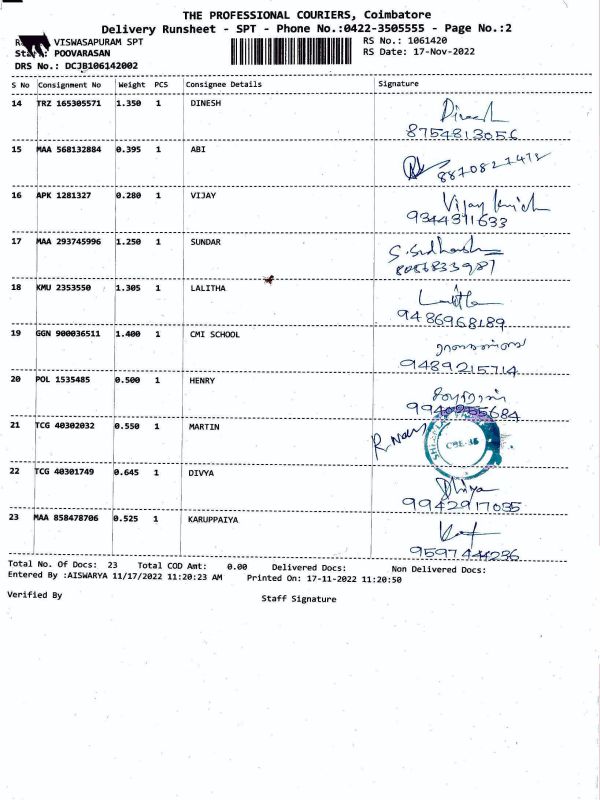 THE PROFESSIONAL COURIERS, Coimbatore
Delivery Runsheet - SPT - Phone No.:0422-3505555 - Page No.:2
VISWASAPURAM SPT RS No.: 1061420
POOVARASAN RS Date: 17-Nov-2022
DRS No.: DCJB106142002
S No Consignment No Weight PCS Consignee Details Signature
14 TRZ 165305571 1.350 1 DINESH Dinesh
8754813056
15 MAA 568132884 0.395 1 ABI
8870827472
16 APK 1281327 0.280 1 VIJAY Vijay
9344391633
17 MAA 293745996 1.250 1 SUNDAR
8056833987
18 KMU 2353550 1.305 1 LALITHA Lalitha
9486968189
19 GGN 900036511 1.400 1 CMI SCHOOL
9489215714
20 POL 1535485 0.500 1 HENRY
21 TCG 40302032 0.550 1 MARTIN
22 TCG 40301749 0.645 1 DIVYA Dhivya
9942917035
23 MAA 858478706 0.525 1 KARUPPAIYA
9597444236
Total No. Of Docs: 23 Total COD Amt: 0.00 Delivered Docs: Non Delivered Docs:
Entered By :AISWARYA 11/17/2022 11:20:23 AM Printed On: 17-11-2022 11:20:50
Verified By Staff Signature